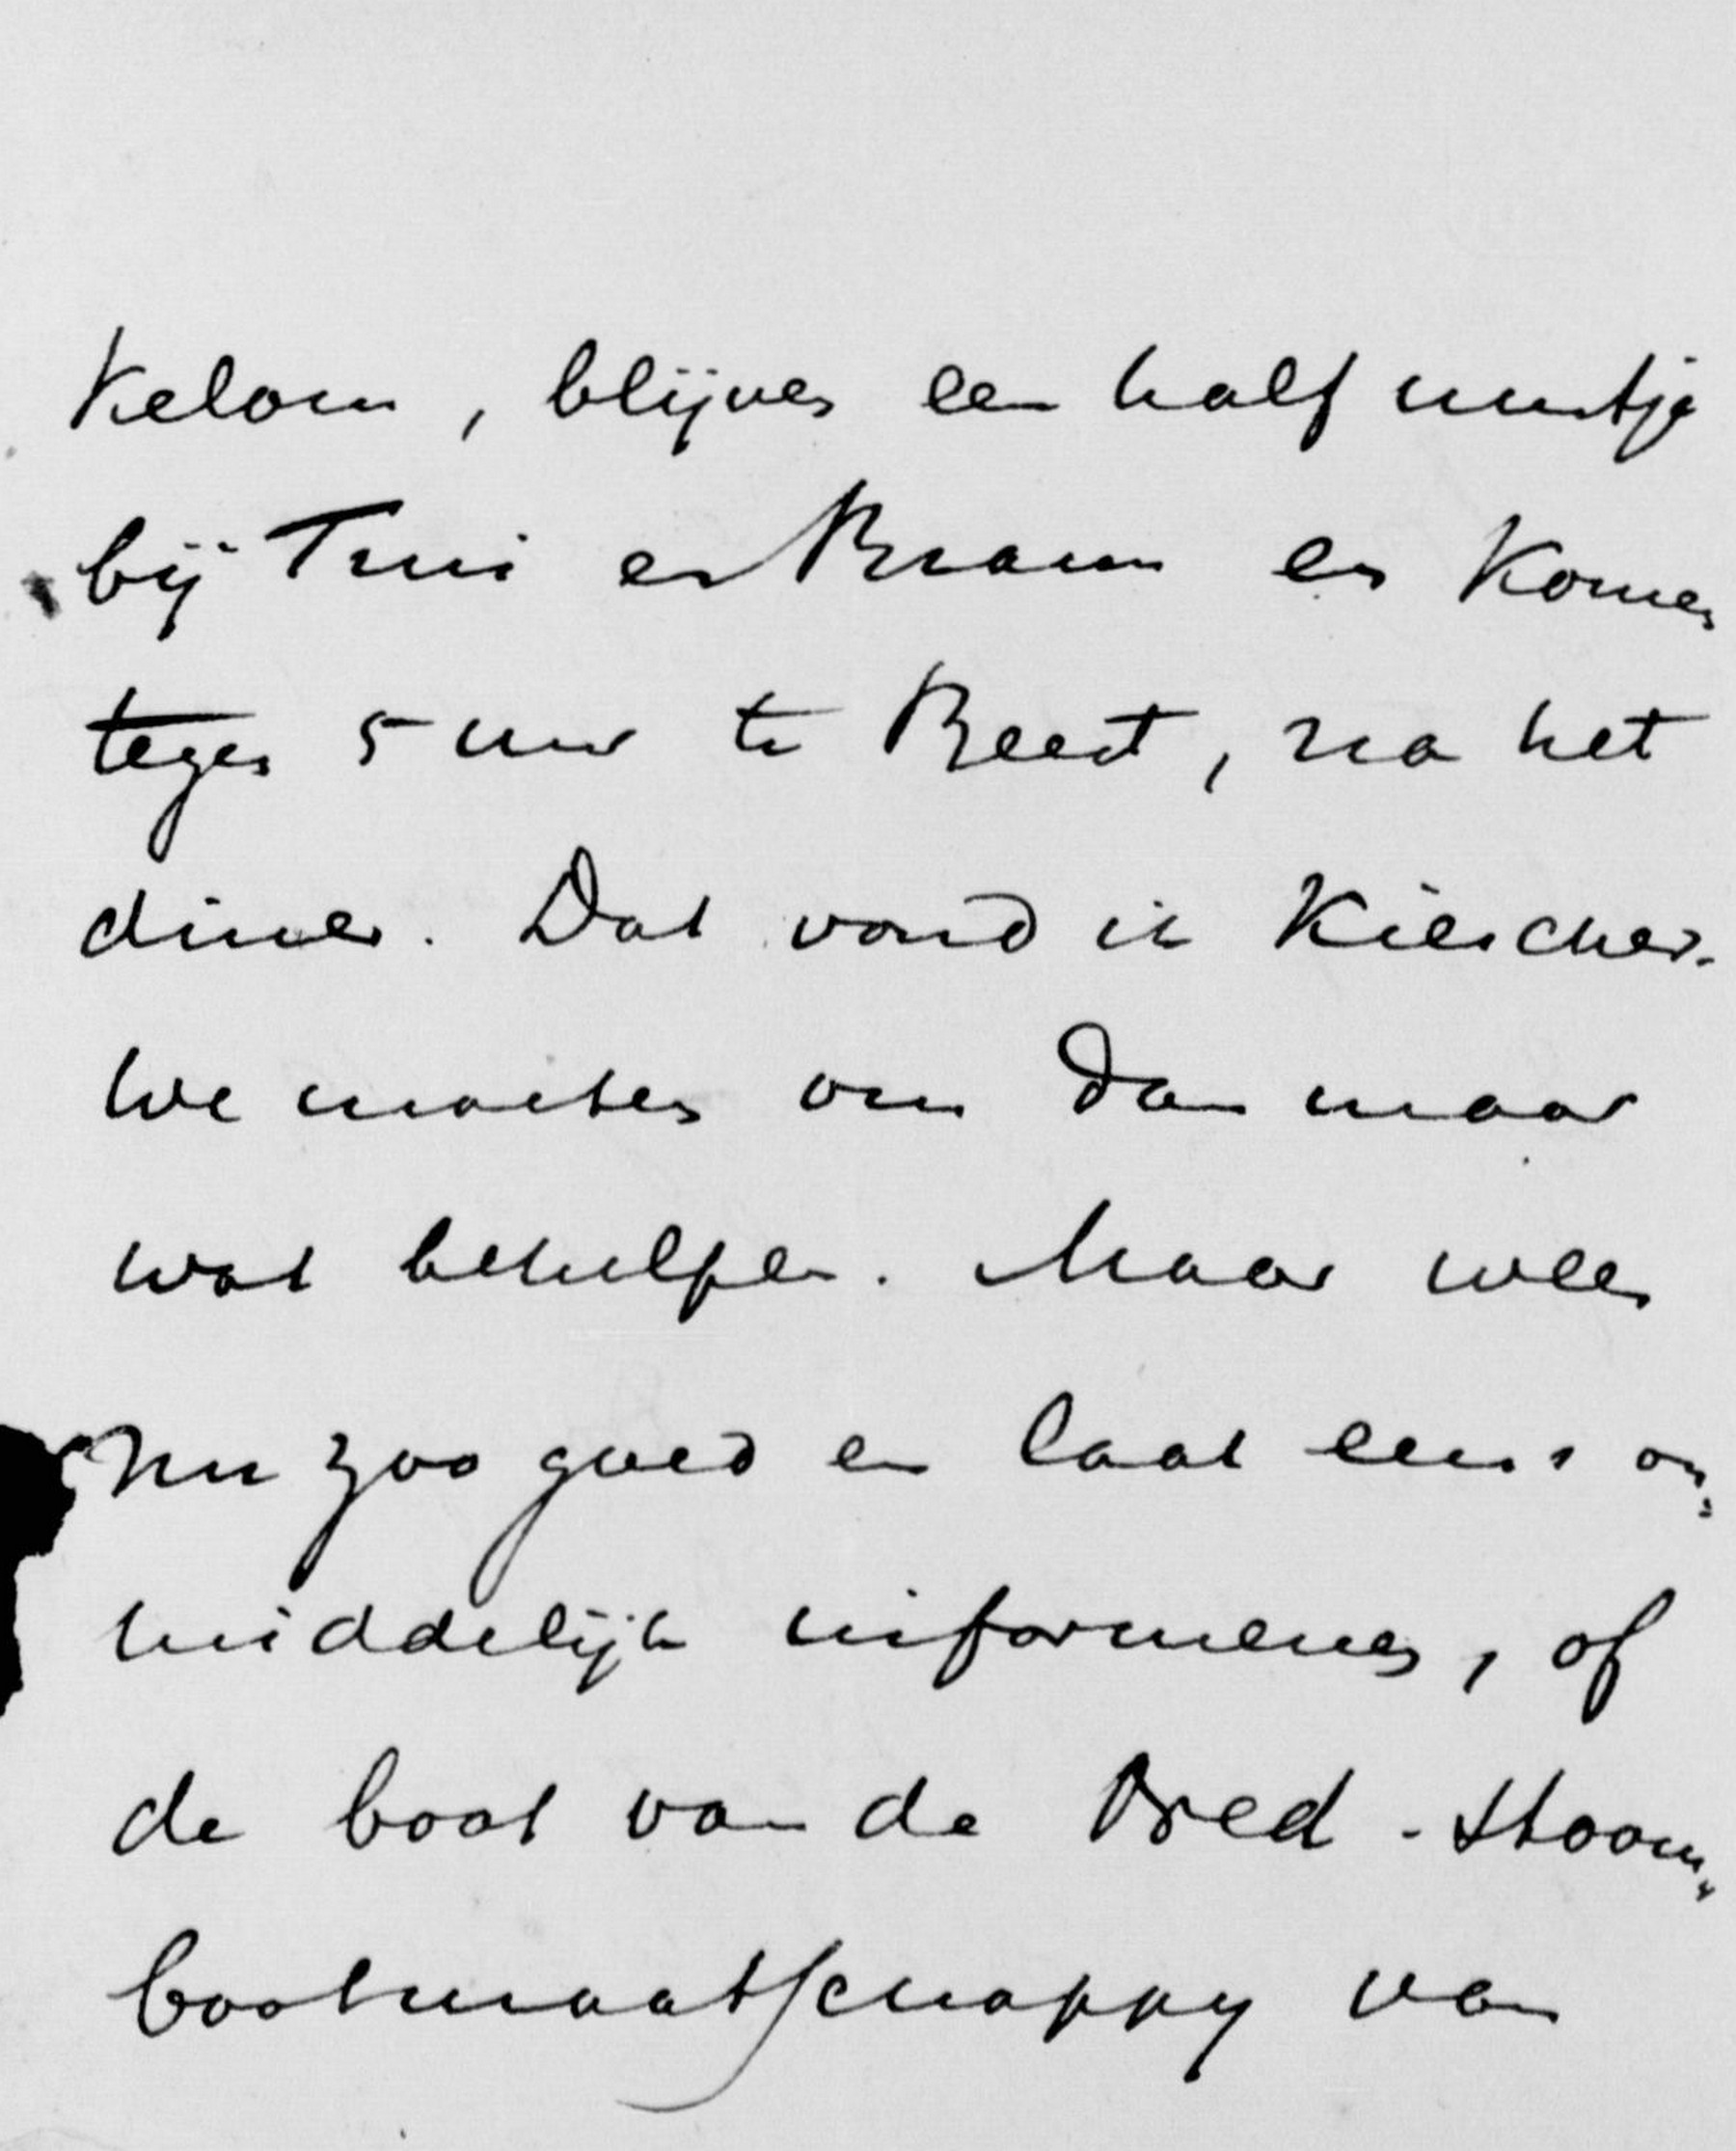 Kelom, blijven een half uurtje
bij Trui en Bram en komen
tegen 5 uur te Beest, na het
diner. Dat vond ik kiescher.
We moeten ons dan maar
wat behelpen. Maar wees
nu zoo goed en laat eens on-
middelijk informeren, of
de boot van de Dred. Stoom-
bootmaatschappy van